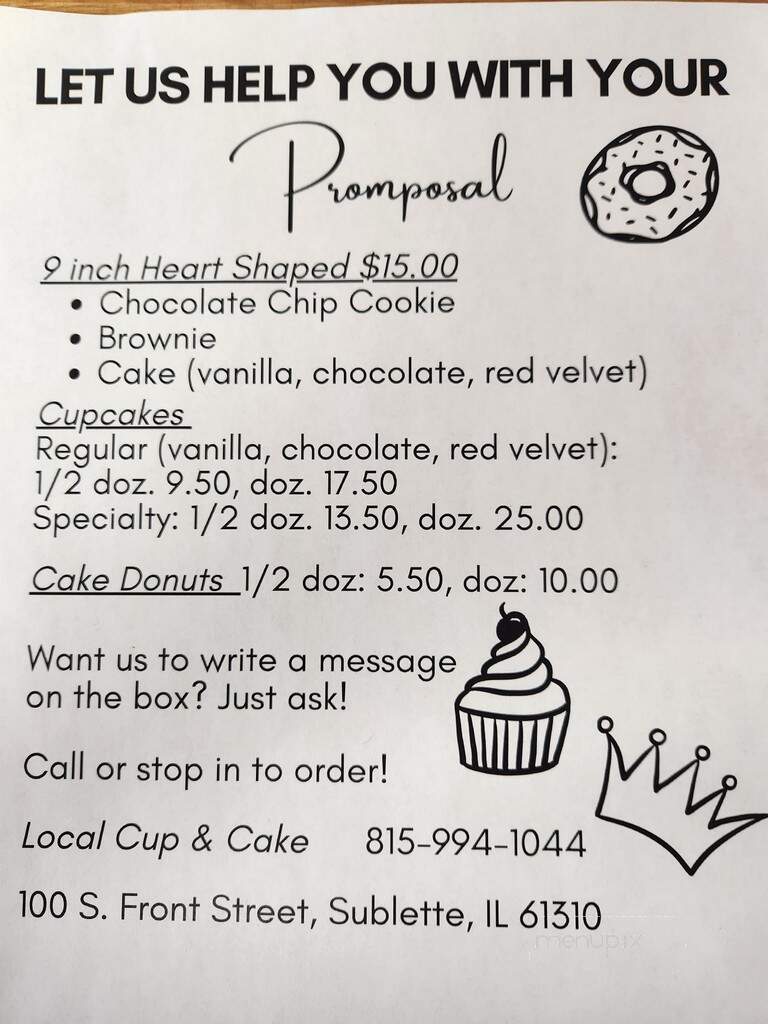 LET US HELP YOU WITH YOUR
Promposal
9 inch Heart Shaped $15.00
• Chocolate Chip Cookie
• Brownie
• Cake (vanilla, chocolate, red velvet)
Cupcakes
Regular (vanilla, chocolate, red velvet):
1/2 doz. 9.50, doz. 17.50
Specialty: 1/2 doz. 13.50, doz. 25.00
Cake Donuts 1/2 doz: 5.50, doz: 10.00
Want us to write a message
on the box? Just ask!
Call or stop in to order!
Local Cup & Cake 815-994-1044
100 S. Front Street, Sublette, IL 61310
menupix